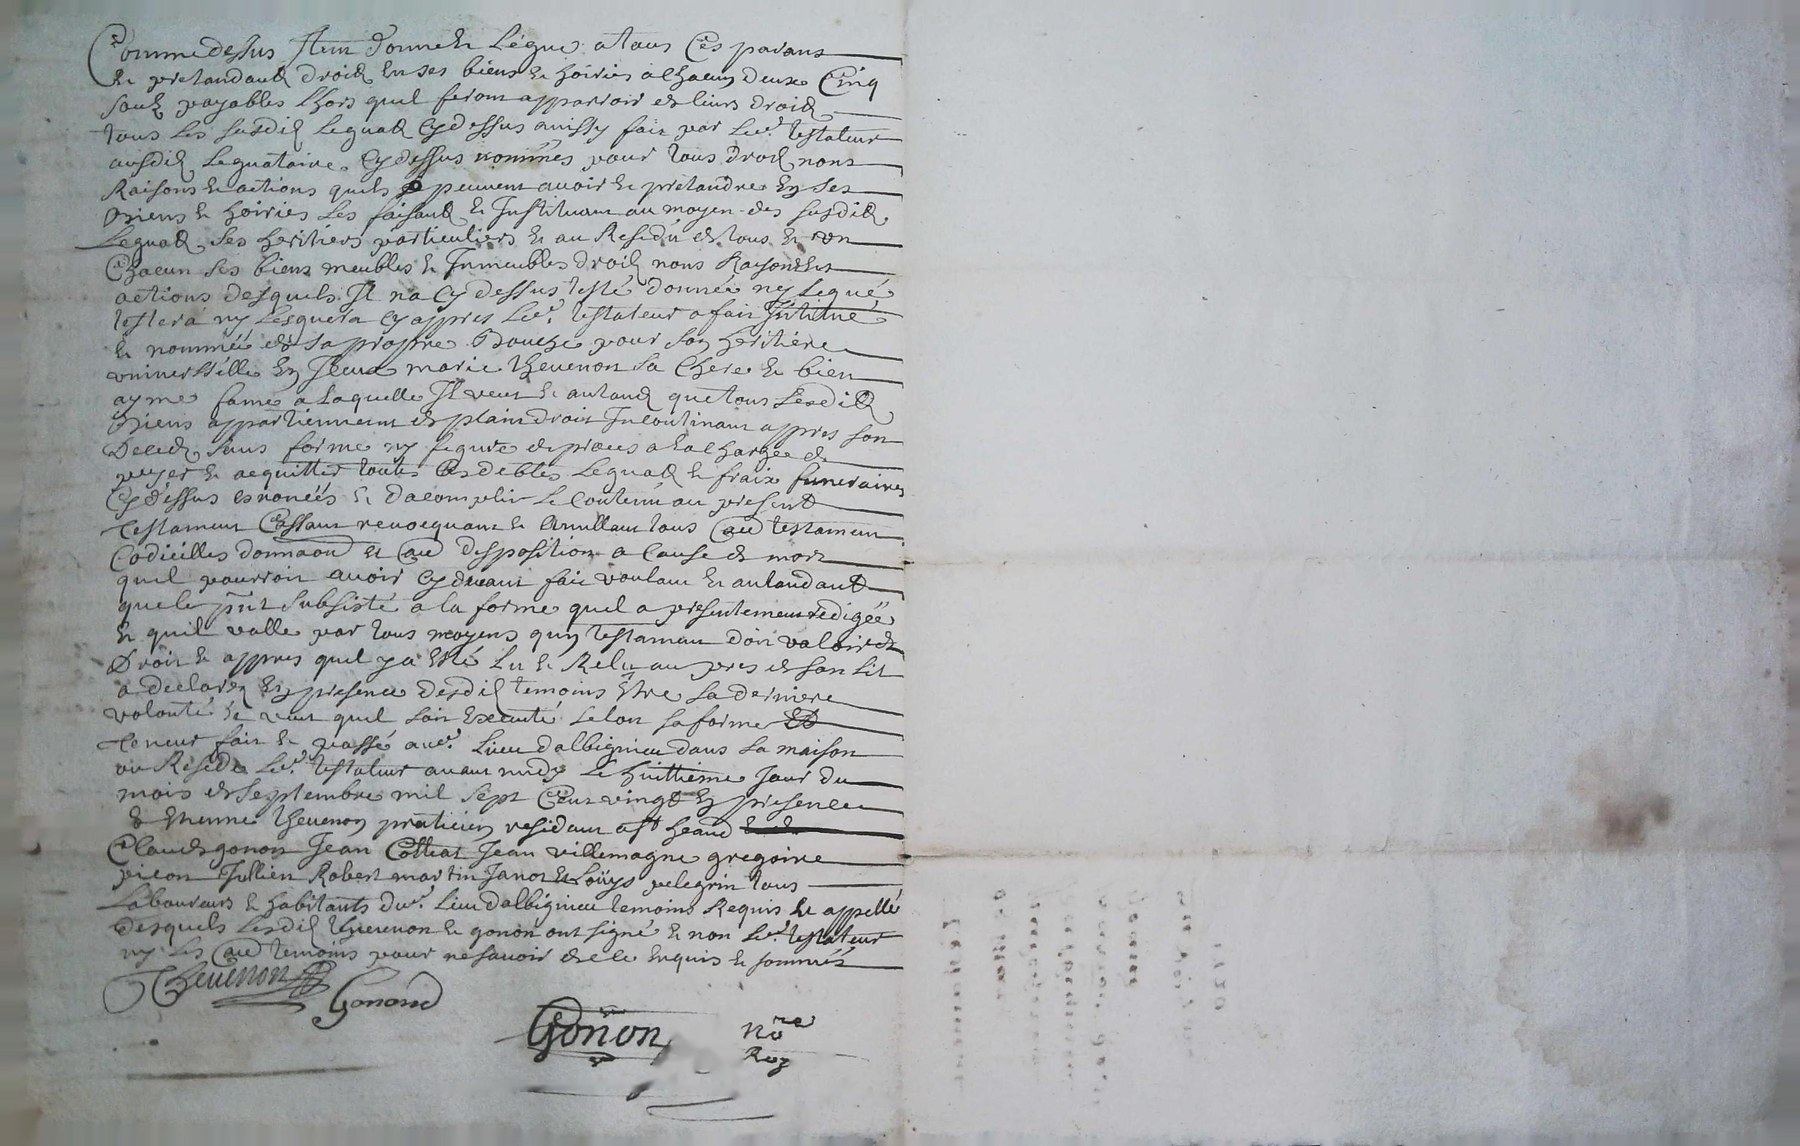 Comme dessus Item donne & Légue a tous Ces parans
& pretandants droits En ses biens & hoiries a Chacun deux Cinq
solz payables Lhors quil feront apparroir de leurs droits
tous Les susdits Leguats Cy dessus ainssy fait par Led.t testateur
ausdits Leguataire Cy dessus nommés pour tous droits noms
Raisons & actions quils peuvent avoir & pretandre En ses
Biens & hoiries Les faisant & Instituant au moyen des susdits
Leguats Ses heritiers particuliers & au Residu de tous & un
Chacun ses biens meubles & Inmeubles droits noms Raisons &
actions desquels Il na Cy dessus testé donnée ny Legué
testera ny Lesguera Cy appres Led.t testateur a fait Institué
& nommée de sa propre Bouche pour son heritiére
universsélle marie thevenon sa Chere & bien
ayme fame a Laquelle Il veut & antand que tous Lesdits
Biens appartiennent de plain droit Incontinant appres son
Deceds sans forme ny figure de proces a La Charge de
payer & acquitter toutes Ces debtes Leguats & fraix funeraires
Cy dessus enoncés & dacomplir Le Contenu au present
testament Cassant revocquant & Anullant tous au.t testament
Codicilles donnaon & au.t disposition a Cause de mort
quil pourroit avoir Cy devant fait voulant & antandant
que le p.nt subsiste a la forme quil a presentement redigée
& quil valle par tous moyens quun testamant doit valoir de
Droit & appres quil y a Esté Lu & Relu au pres de son Lit
a declaré En presence desdits temoins Estre sa derniere
volonté & veut quil soit Executé selon sa forme &
teneur fait & passé aud.t Lieu dalbignieu dans sa maison
ou Reside Led.t testateur avant midy Le huittieme Jour du
mois de septembre mil sept Cent vingt En presence
de Etienne thevenon praticien residant a st heand
Claude gonon Jean Jean villemagne gregoire
picon Jullien Robert martin Janot & Loüys pelegrin tous
Laboureurs & habitants dud.t Lieu dalbignieu temoins Requis & appellé
Desquels Lesdits thevenon & gonon ont signé & non Led.t testateur
ny Les au.t temoins pour ne savoir de ce Enquis & sommés
Thevenon
Gonond
Gonon
No.re
Roy
1720